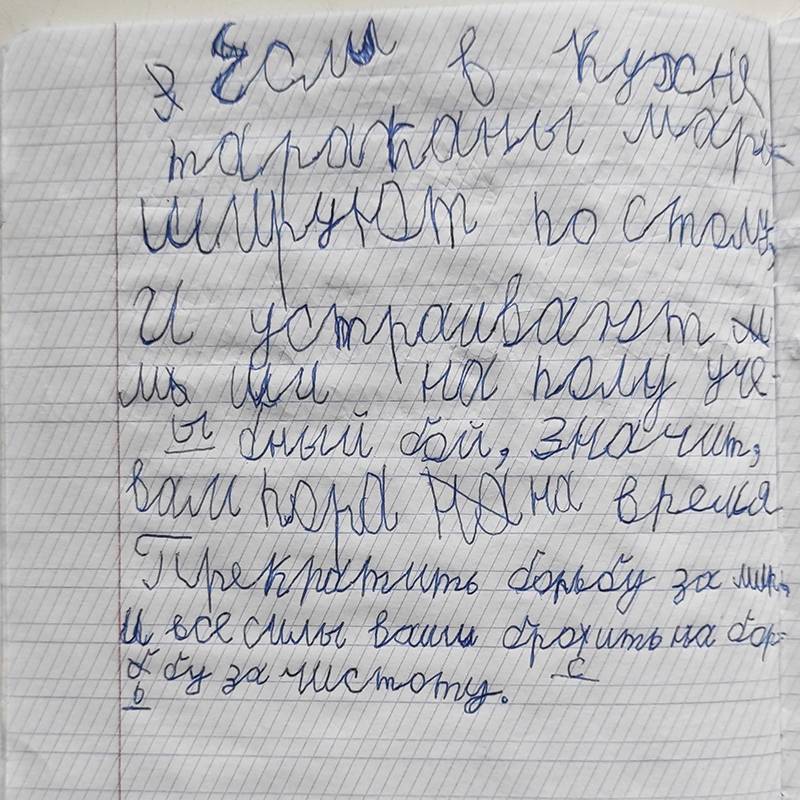 Если в кухне
тараканы мар-
шируют по столу,
И устраивают
мыши на полу уче-
ы бный бой, значит,
вам пора на время
Прекратить борьбу за мир,
и все силы ваши брохить на бор-
с
ббу за чистоту.
ь